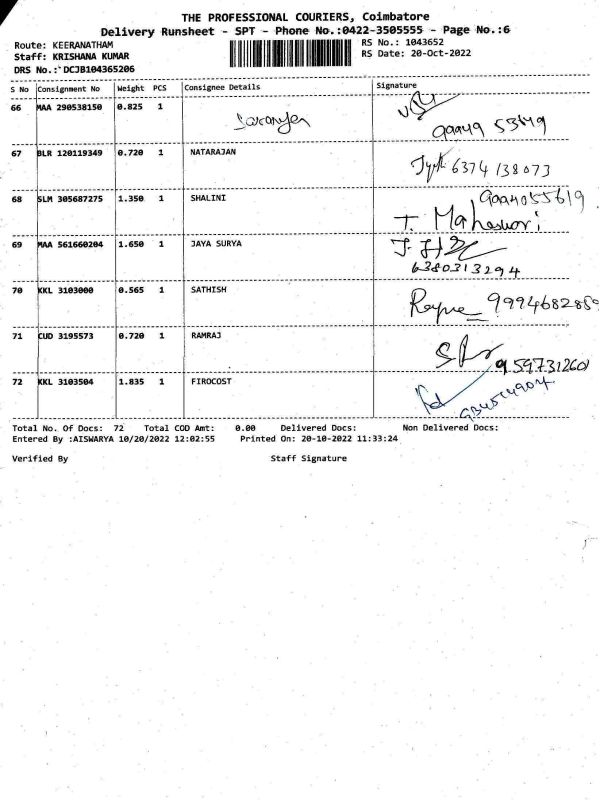 THE PROFESSIONAL COURIERS, Coimbatore
Delivery Runsheet - SPT - Phone No.:0422-3505555 - Page No.:6
Route: KEERANATHAM RS No.: 1043652
Staff: KRISHANA KUMAR RS Date: 20-Oct-2022
DRS No.: DCJB104365206
S No Consignment No Weight PCS Consignee Details Signature
66 MAA 290538150 0.825 1 Saranya
67 BLR 120119349 0.720 1 NATARAJAN 6374138073
68 SLM 305687275 1.350 1 SHALINI
T. Maheswari
69 MAA 561660204 1.650 1 JAYA SURYA
6380313294
70 KKL 3103000 0.565 1 SATHISH 9994682859
71 CUD 3195573 0.720 1 RAMRAJ
9597312601
72 KKL 3103504 1.835 1 FIROCOST
Total No. Of Docs: 72 Total COD Amt: 0.00 Delivered Docs: Non Delivered Docs:
Entered By :AISWARYA 10/20/2022 12:02:55 Printed On: 20-10-2022 11:33:24
Verified By Staff Signature